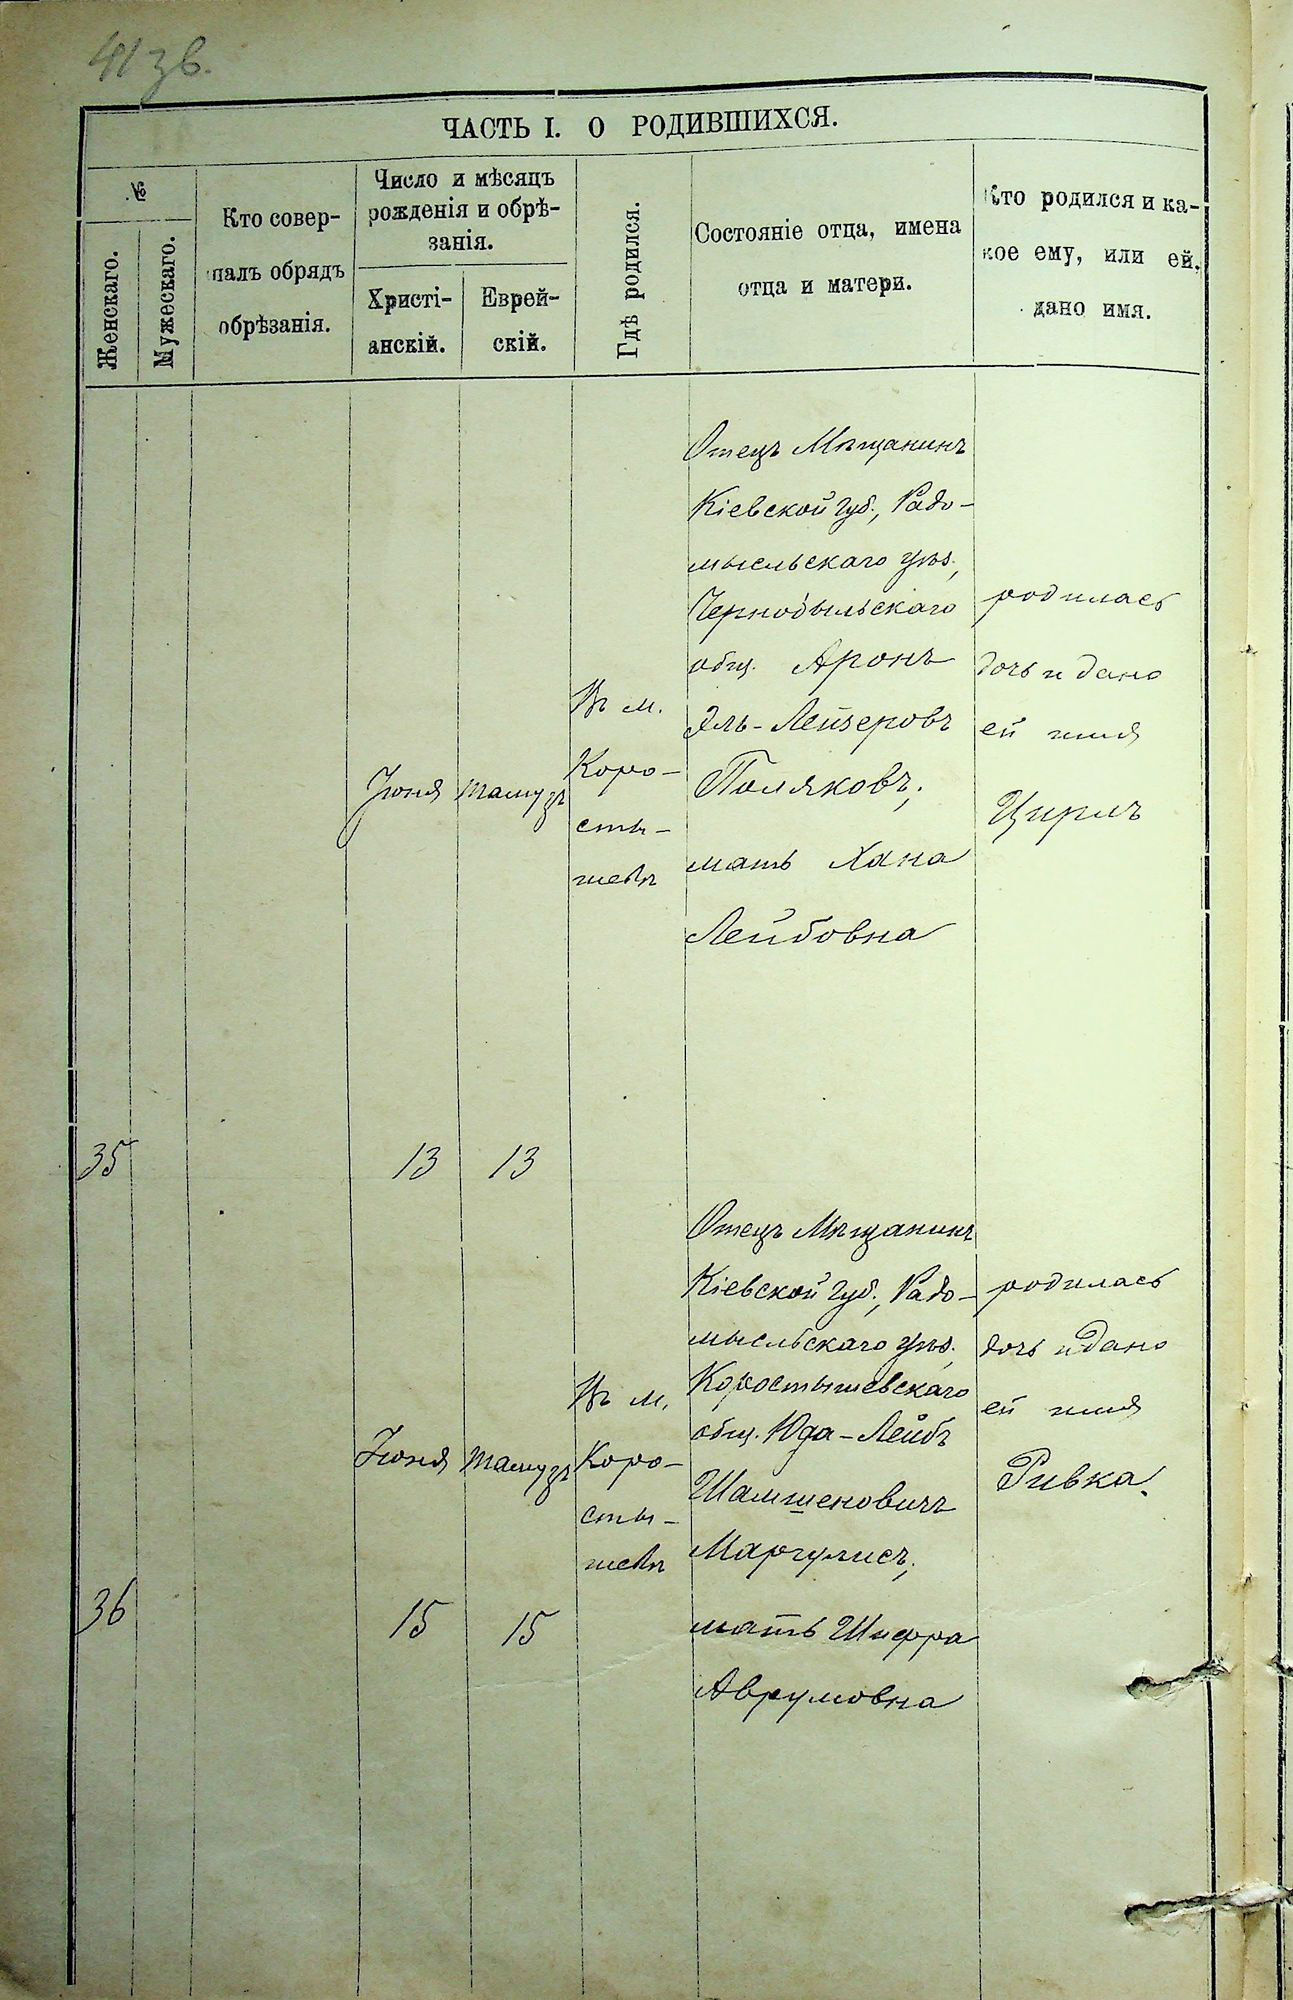 41 зв.
ЧАСТЬ I. О РОДИВШИХСЯ.
№
Женскаго.
Мужескаго.
Кто совер-
шалъ обрядъ
обрѣзанія.
Число и мѣсяцъ
рожденія и обрѣ-
занія.
Христі-
анскій.
Еврей-
скій.
Гдѣ родился.
Состояніе отца, имена
отца и матери.
Кто родился и ка-
кое ему, или ей,
дано имя.
35
Іюня
13
Тамузъ
13
Въ м.
Коро-
сты-
шевѣ
Отецъ Мѣщанинъ
Кіевской губ., Радо-
мысльскаго уѣз.,
Чернобыльскаго
общ. Аронъ
Эль-Лейзеровъ
Поляковъ,
мать Хана
Лейбовна
родилась
дочь и дано
ей имя
Цирль
36
Іюня
15
Тамузъ
15
Въ м.
Коро-
сты-
шевѣ
Отецъ Мѣщанинъ
Кіевской губ., Радо-
мысльскаго уѣз.,
Коростышевскаго
общ. Юда-Лейбъ
Шамшеновичъ
Маргулисъ,
мать Шифра
Аврумовна
родилась
дочь и дано
ей имя
Ривка.